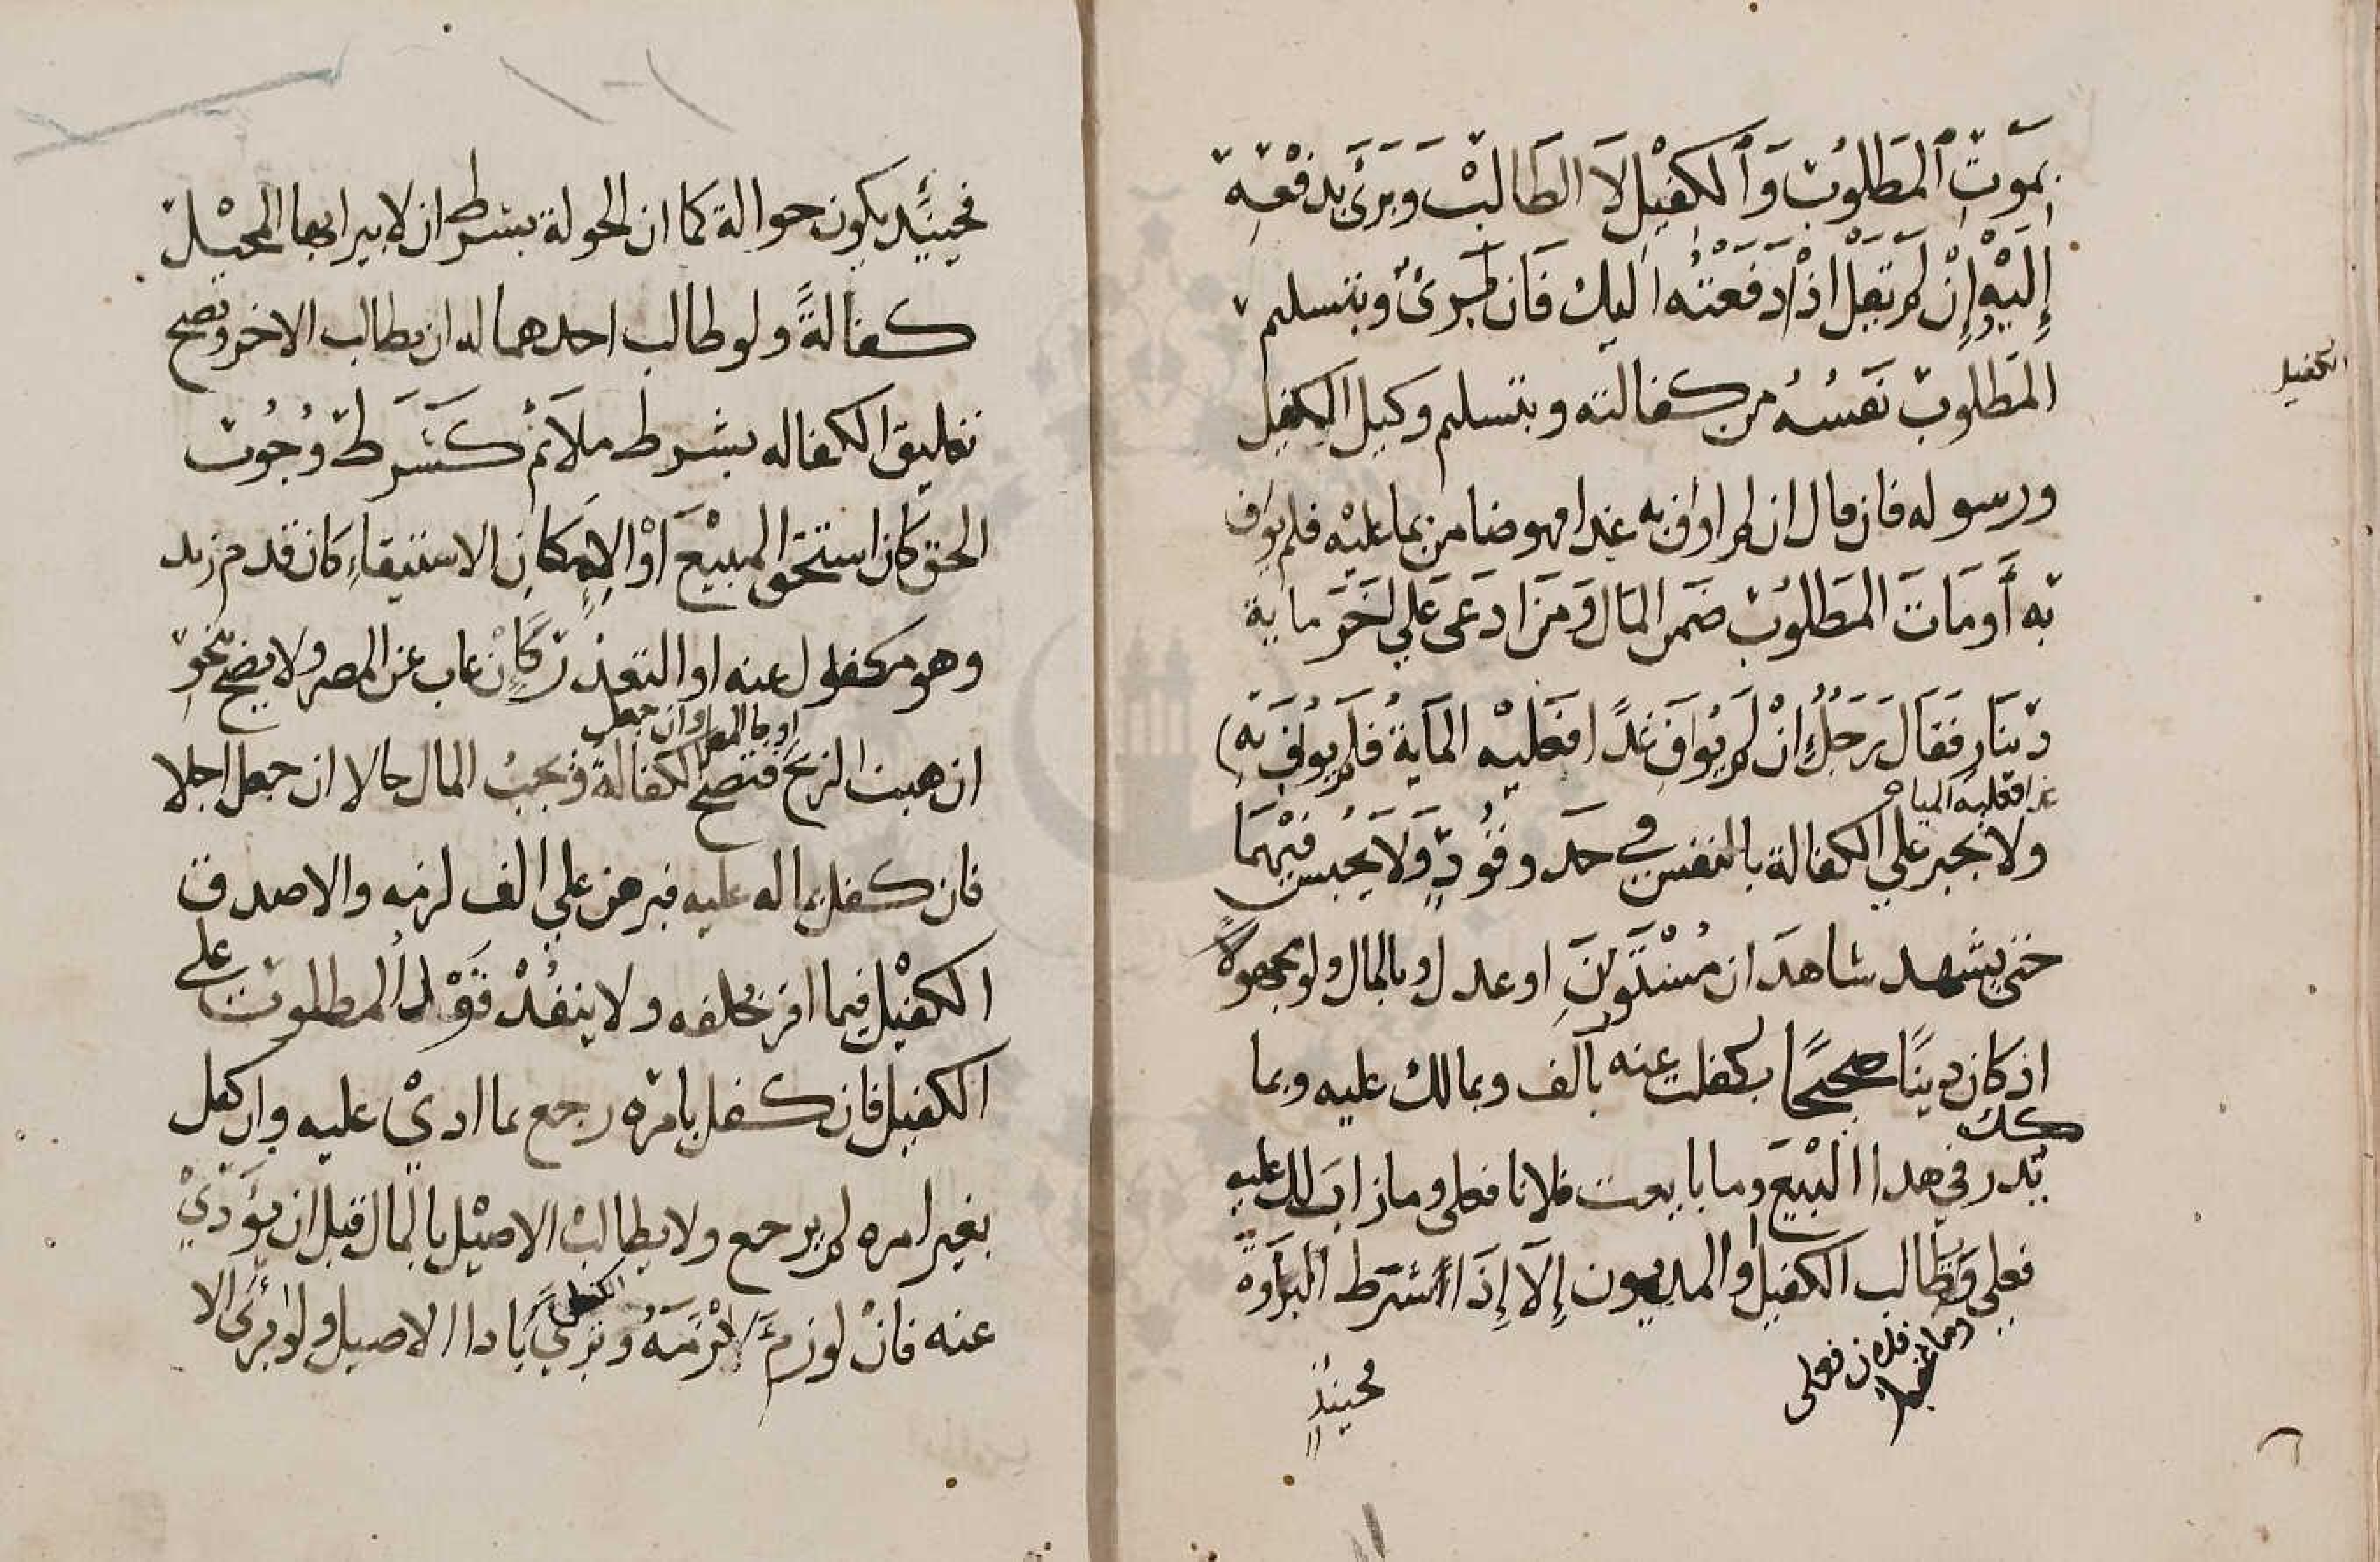 بِمَوتِ ٱلمَطلُوبِ وَٱلكفِيْلِ لَا الطَالِبْ وَبَرَئَ بِدفْعِهِ
إِلَيْهِ وَإِنْ لَم يَقِلْ اِذْا دَفَعْتُه اليك فَان بَرِئٌ وبتسليم
المَطلوبِ نَفسُهُ من كفالته وبتسليم وكيل الكفيل
الكفيل
ورسوله فان قال ان لم اواف به غدا فهو ضامن بما عليْه فلم يواف
به أَو مَاتَ المَطلُوبُ ضَمن المَال وَمَن ادعَى عَلي اخَر ماية
دينَار فقَال رَجلٌ اِنْ لَم يُوافَ غدًا فعَليْه المَايةُ فلَم يُوف بِه
غدا فعليه المياه
ولا يجبر علي الكفالة بالنفس في حَد وقُودٍ وَلَا يُحْبس فيْهمَا
حتي يشهد شاهدَان مُسْتُورَانِ او عدل وبالمال ولو مجهولًا
اذ كان دينًا صحيحًا بكفلت عنه بالف وبمالك عليه وبما
يدركك في هدا البْيَع وما بايعت فلانا فعلي وما ذاب لك عليه
فعلي وَطالب الكفيل او المديون إِلَا إِذَا اشترط البرَاوة
وما غصبك فلان فعلى
فحينيذٍ
فحينئِذ يكون حوالة كما ان الحولة بشرط ان لا يبرا بها المحيْل
كفالةً ولو طالب احدهما له ان يطالب الاخر وتصح
تعليق الكفاله بشرط ملَائمْ كشَرط وُجُوب
الحق كان استحق المبيْعَ اوْ الاِمكانِ الاستيفاءِ كان قدم زيد
وهو مكفول عنه او التعذر كَانْ غاب عن المصر ولا يصح بنحو
او جا المطر وان جعل
ان هبت الريح فتصحَ الكفالةَ وَيجبُ المال حالا ان جعل اجلا
فان كفل بماله عليه فبرهن علي الف لزمه والا صدق
الكفيْل فيما اقر بحلفه ولا ينفُذْ قَوْلُ المطلوب علي
الكفيل فان كفل بامره رجع بما اديْ عليه وان كفل
بغير امره لم يرجع ولا يطالب الاصيْل بالمال قبل ان يؤديْ
الكفيل
عنه فانْ لوزمَ لازَمَهُ وبرئَ بادا الاصيل ولو ابرئ الا